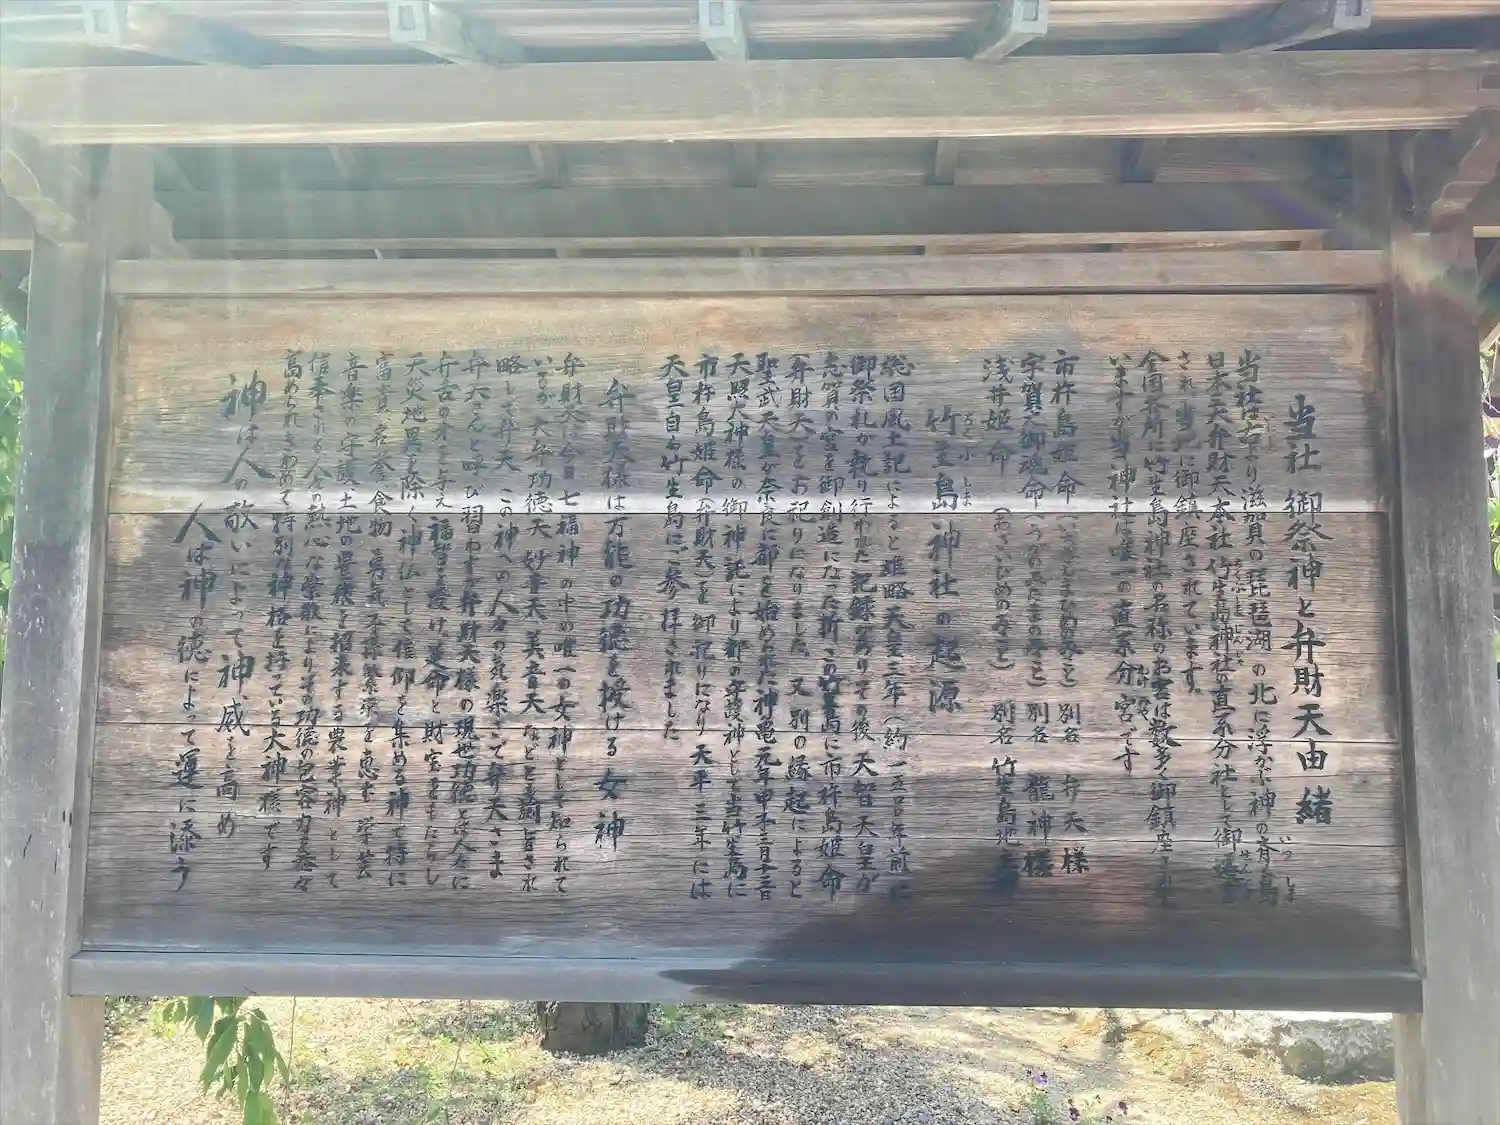 当社御祭神と弁財天由緒
当社は古より滋賀の琵琶湖の北に浮かぶ神の斉島
いつしま
日本三大弁財天本社竹生島神社の直系分社として御遷宮
され当地に御鎮座されています。
全国各所に竹生島神社の名称のお宮は数多く御鎮座されて
いますが当神社は唯一の直系分宮です
市杵島姫命(いちきしまひめのみこと)別名 弁天様
宇賀之御魂命(うかのみたまのみこと)別名 龍神様
浅井姫命(あざいひめのみこと)別名 竹生島地主
竹生島神社の起源
総国風土記によると雄略天皇三年(約一五〇〇年前)に
御祭礼が執り行われた記録がありその後天智天皇が
志賀の宮を御創造になった折この竹生島に市杵島姫命
(弁財天)をお祀りになりました 又別の縁起によると
聖武天皇が奈良に都を始められた神亀元年
天照大神様の御神託により都の守護神として当竹生島に
市杵島姫命(弁財天)を御祀りになり天平三年には
天皇自ら竹生島にご参拝されました
弁財天様は万能の功徳を授ける女神
弁財天は今日七福神の中の唯一の女神として知られて
いるが大弁功徳天 妙音天 美音天などと
略して弁天 この神への人々の気楽さで弁天さま
弁天さんと呼び習わすが弁財天様の現世功徳は人々に
弁舌の才を与え福智を愛け延命と財宝をもたらし
天災地異を除く神仏として信仰を集める神で特に
富貴 名誉 食物 勇気 子孫繁栄を恵む 学芸
音楽の守護 土地の豊穣を招来する農業神として
信奉される人々の熱心な崇敬によりその功徳の包容力を益々
高められきわめて特別な神格を持っている大神様です
神は人の敬いによって神威を高め
人は神の徳によって運に添う